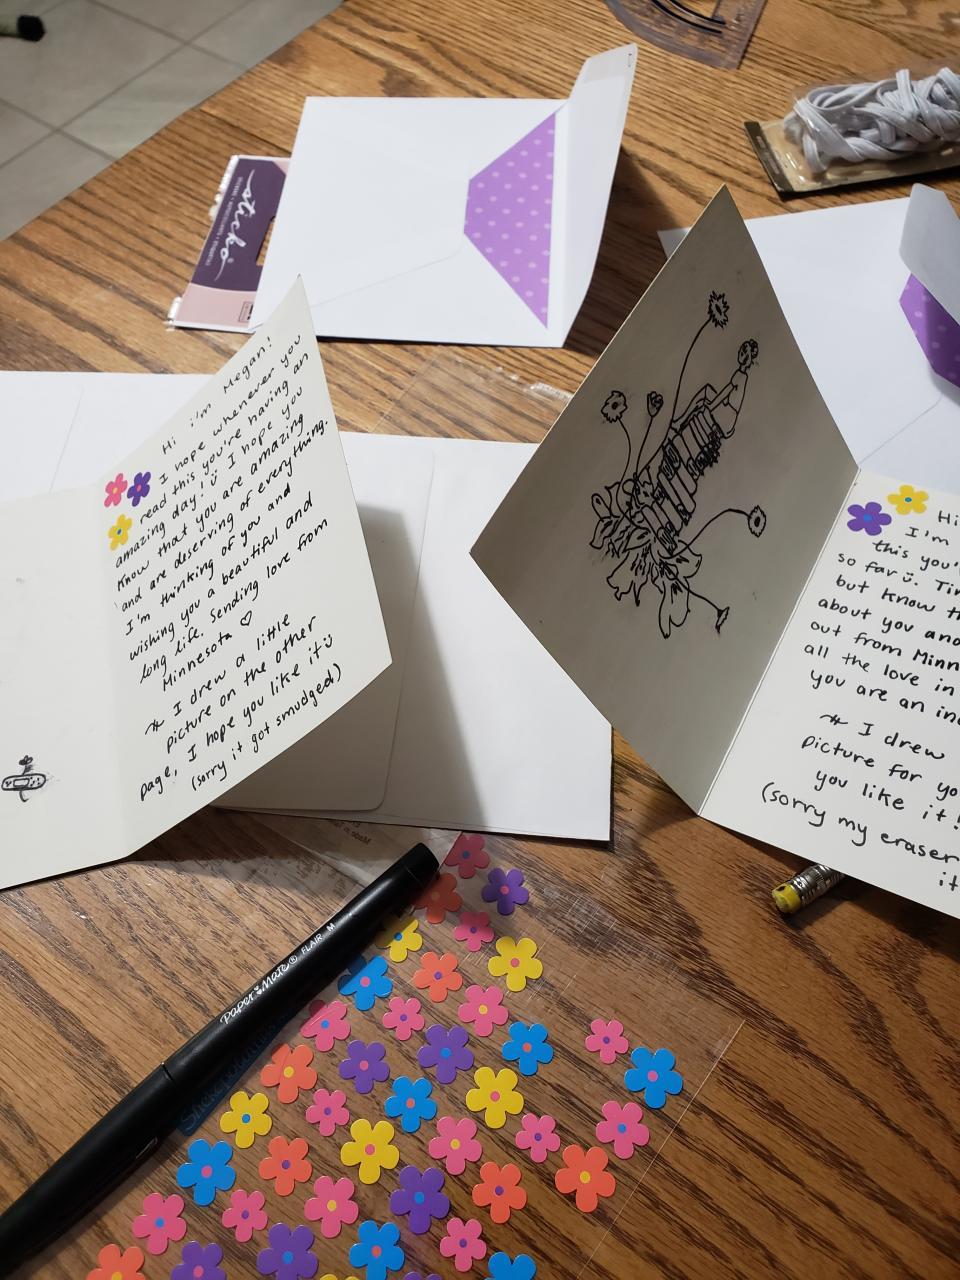 sticko
Hi i'm Megan!
I hope whenever you
read this you're having an
amazing day! I hope you
know that you are amazing
and are deserving of everything.
I'm thinking of you and
wishing you a beautiful and
long life. Sending love from
Minnesota ♡
* I drew a little
picture on the other
page, I hope you like it
(sorry it got smudged)
Hi
I'm
this you'
so far
but know th
about you and
out from Minn
all the love in
you are an in
* I drew
picture for yo
you like it!
(sorry my eraser
it
Paper Mate® FLAIR M